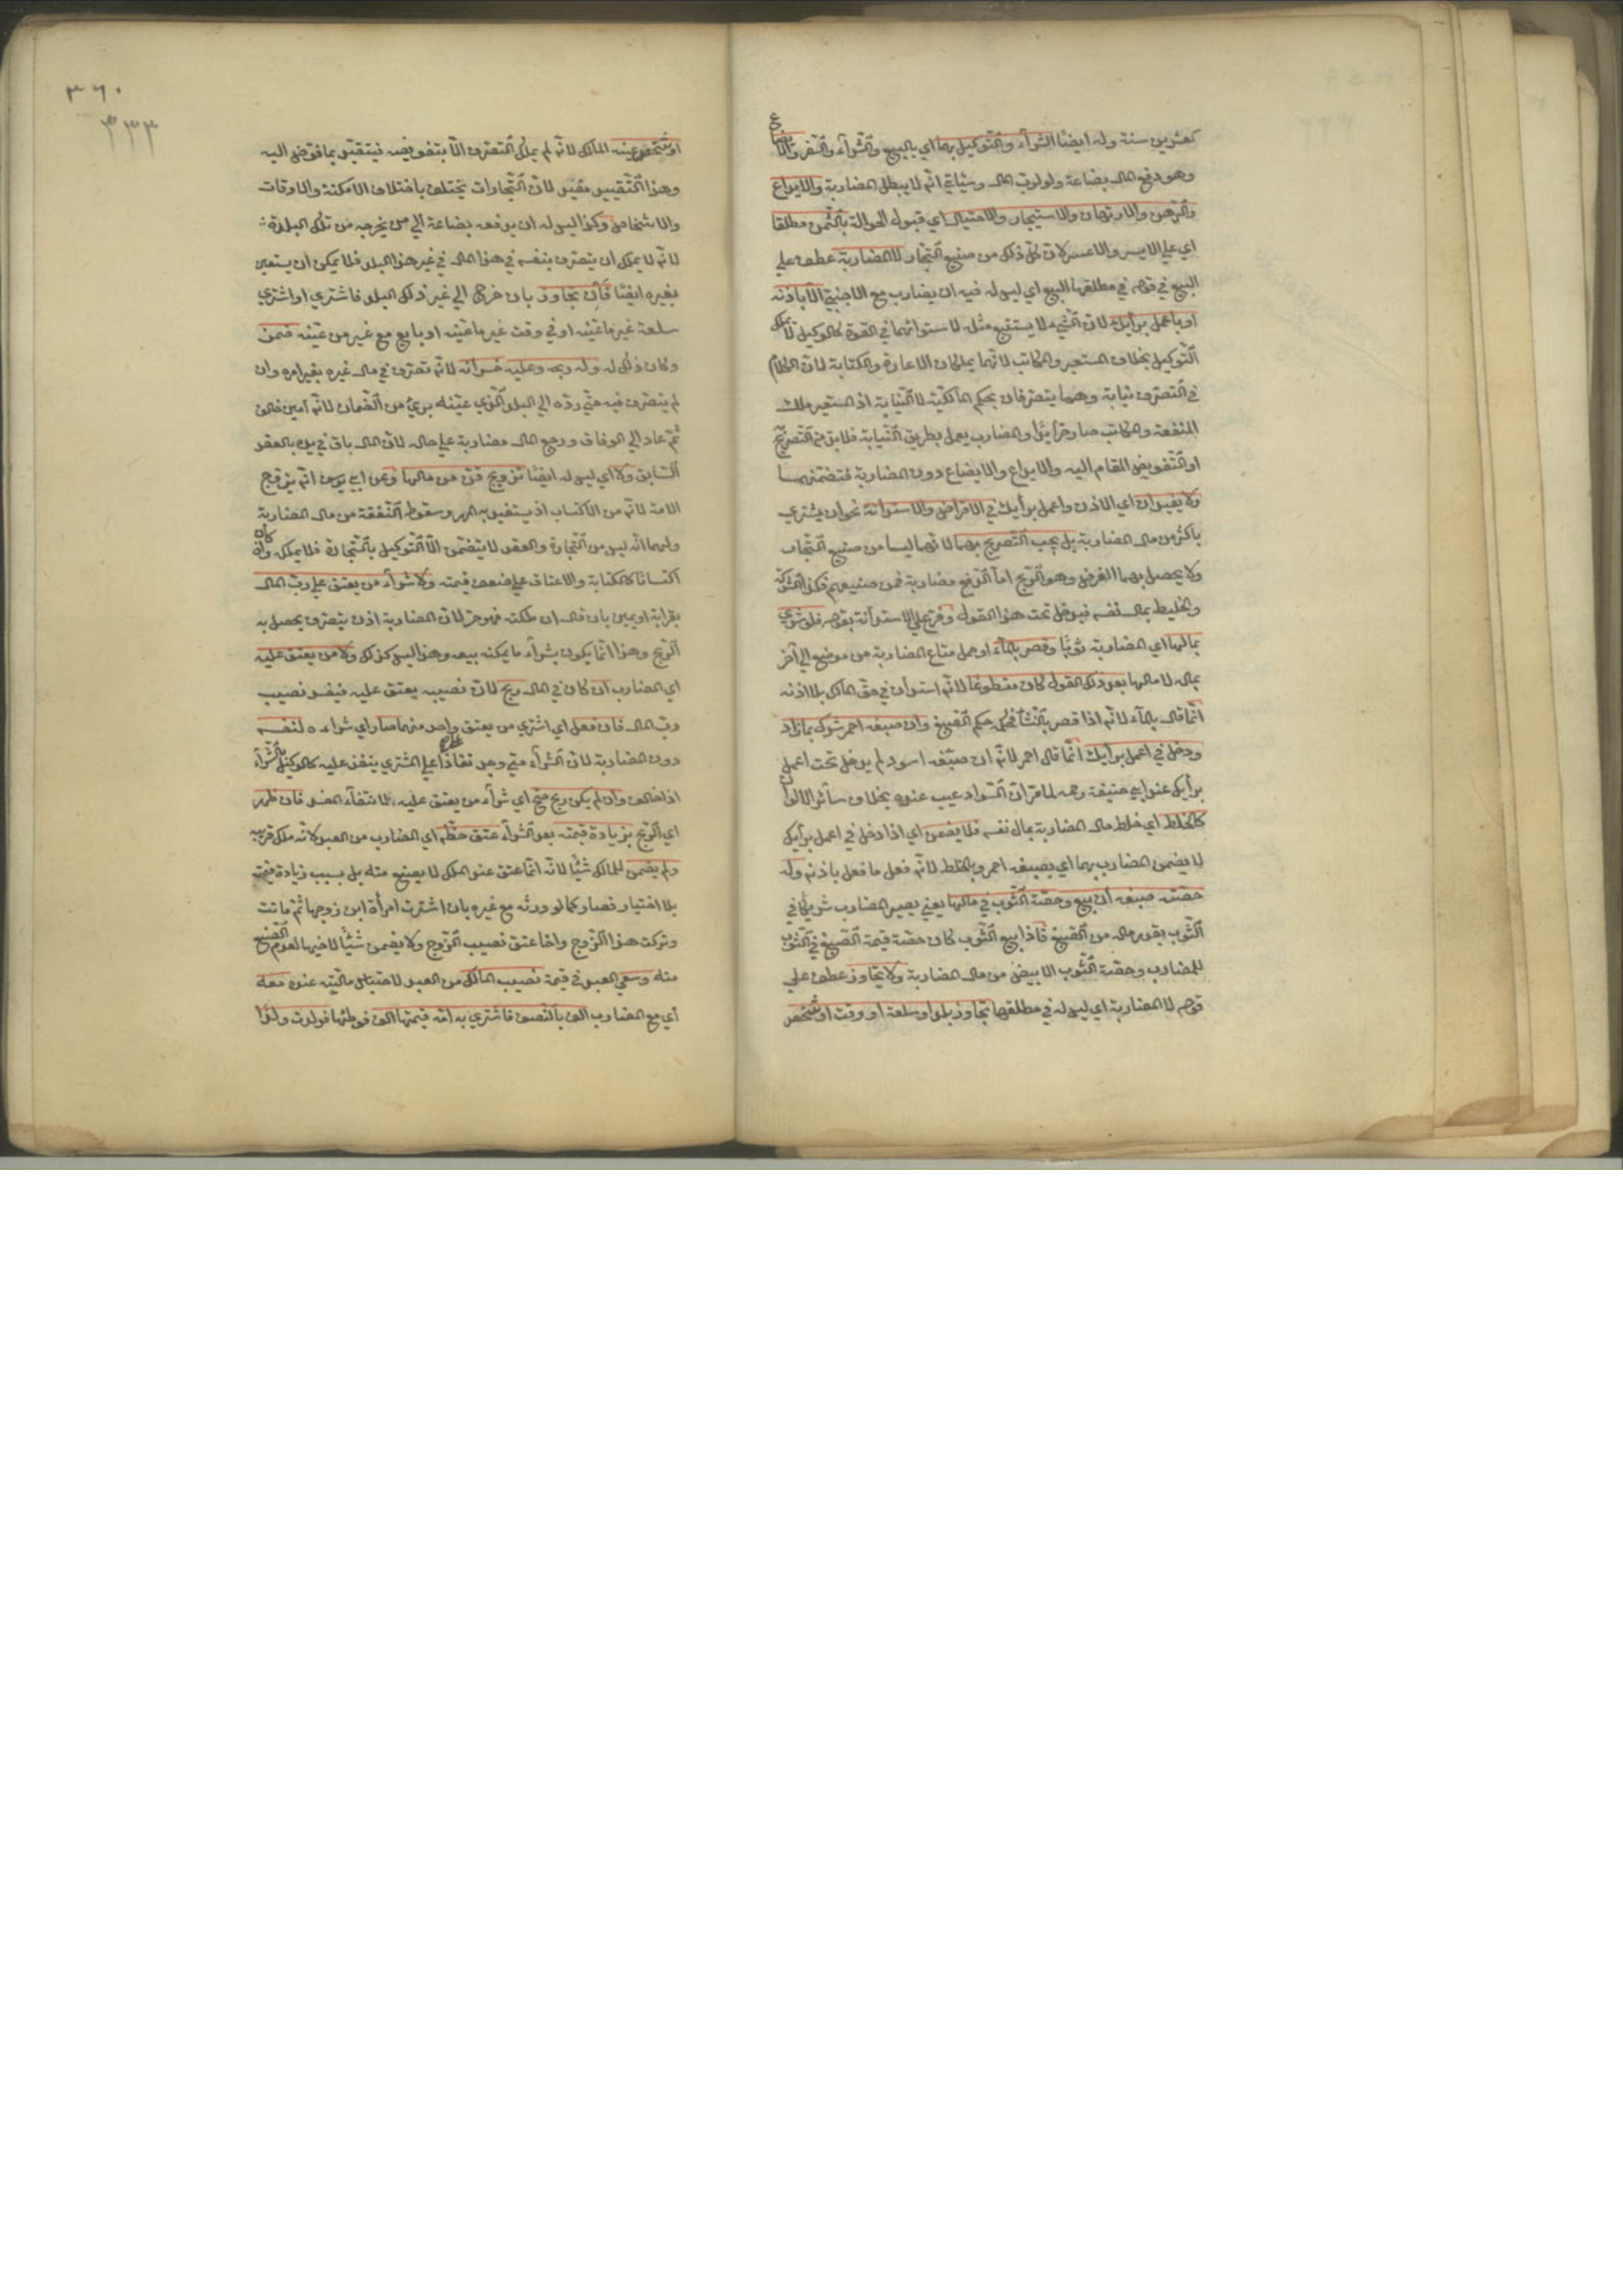 كعشرين سنة وله ايضا الشراء والتوكيل بهما اي بالبيع والشراء والسفر والابضاع
وهو دفع المال بضاعة ولو لرب المال وسيأتي انه لا يبطل المضاربة والايداع
والرهن والارتهان والاستيجار والاحتيال اي قبول الحوالة بالثمن مطلقا
اي علي الايسر والاعسر لان كل ذلك من صنيع التجار لا المضاربة عطف علي
البيع في قوله في مطلقها البيع اي ليس له فيه ان يضارب مع الاجنبي الا باذنه
او باعمل برأيك لان الشيء لا يستتبع مثله لاستوائهما في القوة كالوكيل لا يملك
التوكيل بخلاف المستعير والمكاتب لانهما يملكان الاعارة والكتابة لان الكلام
في التصرف نيابة وهما يتصرفان بحكم المالكية لا النيابة اذ المستعير ملك
المنفعة والمكاتب صار حرا يدا والمضارب يعمل بطريق النيابة فلا بد من التصريح
او التفويض المقام اليه والايداع والابضاع دون المضاربة فتضمنهما
ولا يفيد ان اي الاذن واعمل برأيك في الاقراض والاستدانة نحو ان يشتري
باكثر من مال المضاربة بل يجب التصريح بهما لانهما ليسا من صنيع التجار
ولا يحصل بهما الغرض وهو الربح اما الدفع مضاربة فمن صنيعهم فكذا الشركة
والخليط بمال نفسه فيدخل تحت هذا القول وفرع علي الاستدانة بقوله فلو شري
بمالها اي المضاربة ثوبا وقصر بالماء او حمل متاع المضاربة من موضع الي آخر
بماله لا مالها بعد ذلك القول كان متطوعا لانه استدان في حق المالك بلا اذنه
انما قال بالماء لانه اذا قصر بالنشا فحكمه حكم الصبغ وان صبغه احمر شرك بما زاد
ودخل في اعمل برأيك انما قال احمر لانه ان صبغه اسود لم يدخل تحت اعمل
برأيك عند ابي حنيفة رحمه لما مر ان السواد عيب عنده بخلاف سائر الالوان
كالخلط اي خلط مال المضاربة بمال نفسه فلا يضمن اي اذا دخل في اعمل برأيك
لا يضمن المضارب بهما اي بصبغه احمر وبالخلط لانه فعل ما فعل باذنه وله
حصته صبغه ان بيع وحصة الثوب في مالها يعني يصير المضارب شريكا في
الثوب بقدر ماله من الصبغ فاذا بيع الثوب كان حصة قيمة الصبغ في الثوب
للمضارب وحصة الثوب الابيض من مال المضاربة ولا يجاوز عطف علي
قوله لا المضاربة اي ليس له في مطلقها تجاوز بلد او سلعة او وقت او شخص
٣٦٠
٣٣٣
او شخص عينه المالك لانه لم يملك التصرف الا بتفويضه فيتقيد بما فوض اليه
وهذا التقييد مفيد لان التجارات تختلف باختلاف الامكنة والاوقات
والاشخاص وكذا ليس له ان يدفعه بضاعة الي من يخرجه من تلك البلدة
لانه لا يملك ان يتصرف بنفسه في هذا المال في غير هذا البلد فلا يمكن ان يستعين
بغيره ايضا فان تجاوز بان خرج الي غير ذلك البلد فاشتري او اشتري
سلعة غير ما عينه او في وقت غير ما عينه او بايع مع غير من عينه ضمن
وكان ذلك له وله ربحه وعليه خسرانه لانه تصرف في مال غيره بغير امره وان
لم يتصرف فيه حتي رده الي البلد الذي عينه بريء من الضمان لانه امين خالف
ثم عاد الي الوفاق ورجع المال مضاربة علي حاله لان المال باق في يده بالعقد
السابق ولا اي ليس له ايضا تزويج قن من مالها وعن ابي يوسف انه يزوج
الامة لانه من الاكتساب اذ يستفيد به المهر وسقوط النفقة من مال المضاربة
ولهما انه ليس من التجارة والعقد لا يتضمن الا التوكيل بالتجارة فلا يملكه وان كان
اكتسابا كالكتابة والاعتاق علي ضعف قيمته ولا شراء من يعتق علي رب المال
بقرابة او يمين بان قال ان ملكته فهو حر لان المضاربة اذن بتصرف يحصل به
الربح وهذا انما يكون بشراء ما يمكنه بيعه وهذا ليس كذلك ولا من يعتق عليه
اي المضارب ان كان في المال ربح لان نصيبه يعتق عليه فيفسد نصيب
رب المال فان فعل اي اشتري من يعتق واحد منهما صار اي شراءه لنفسه
دون المضاربة لان الشراء متي وجد نفاذا علي المشتري ينفذ عليه كالوكيل بالشراء
اذا خالف وان لم يكن ربح صح اي شراء من يعتق عليه لانتفاء المفسد فان ظهر
اي الربح بزيادة قيمته بعد الشراء عتق حظه اي المضارب من العبد لانه ملك قريبه
ولم يضمن للمالك شيئا لانه انما عتق عند الملك لا بصنع منه بل بسبب زيادة قيمته
بلا اختيار فصار كما لو ورثه مع غيره بان اشترت امرأة ابن زوجها ثم ماتت
وتركت هذا الزوج واخا عتق نصيب الزوج ولا يضمن شيئا لاخيها لعدم الصنع
منه وسعي العبد في قيمة نصيب المالك من العبد لاحتباس ماليته عنده معه
اي مع المضارب الف بالنصف فاشتري به امة قيمتها الف فوطئها فولدت ولدا